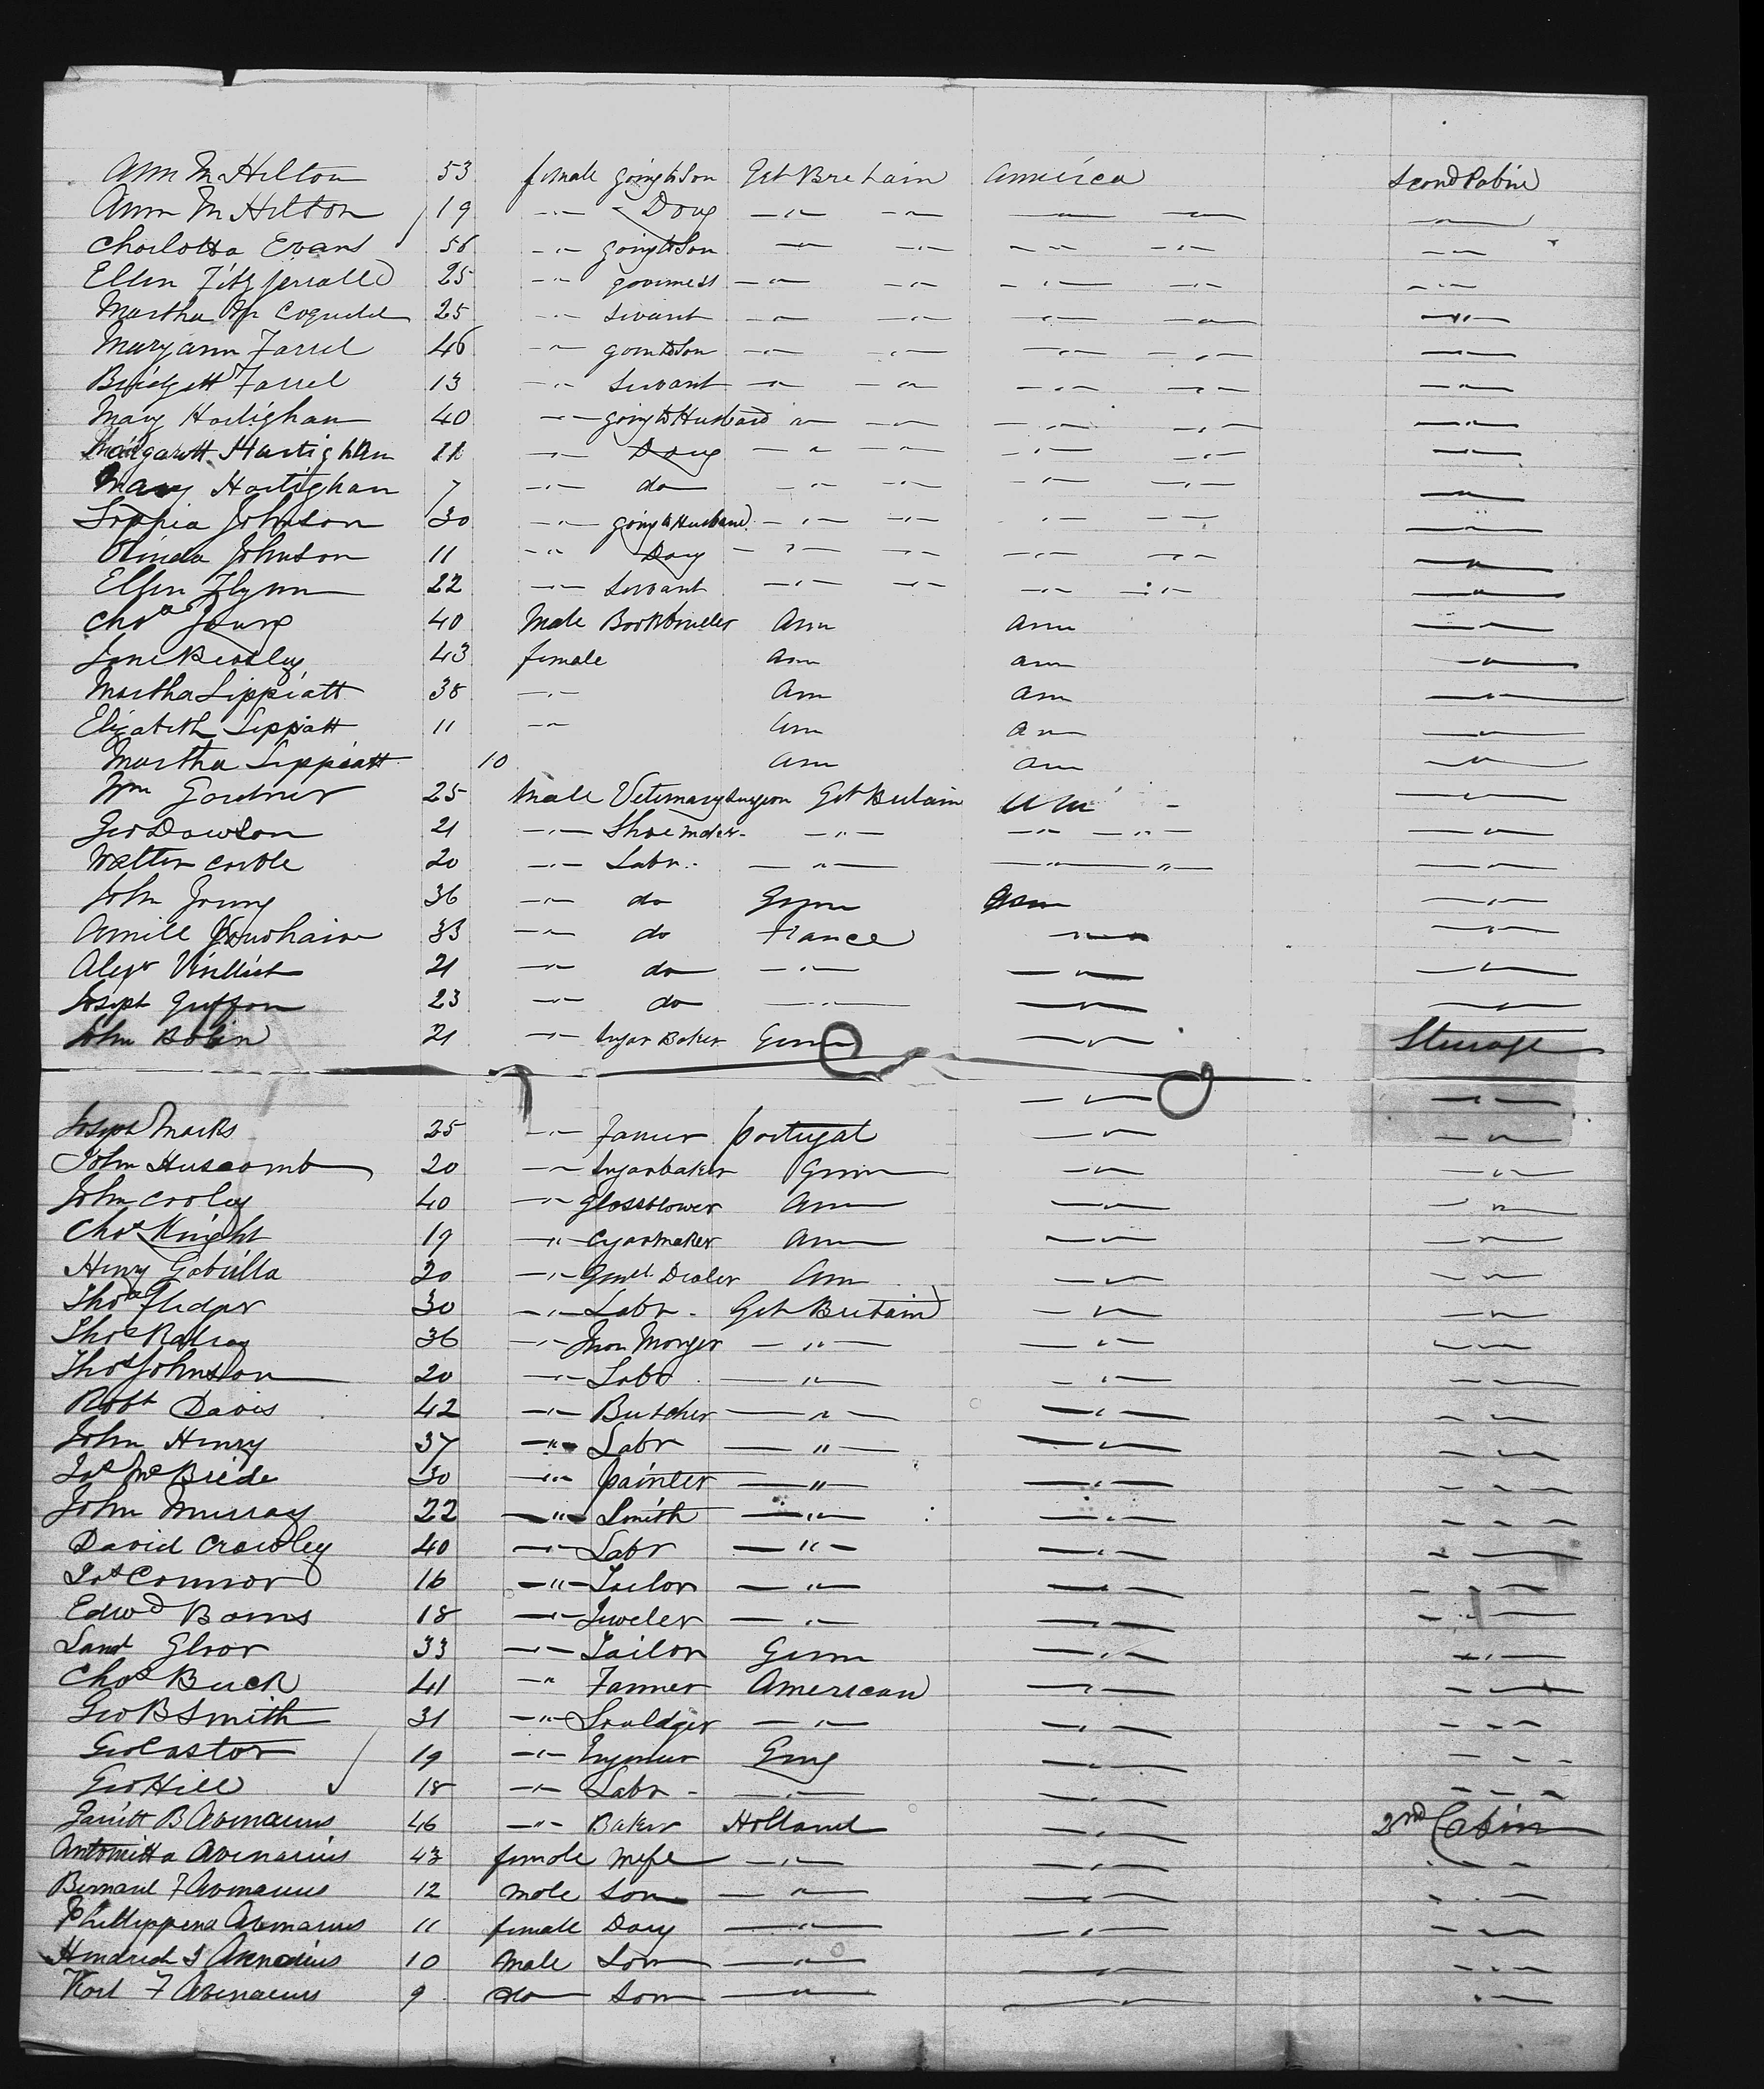 Ann M Hilton 53 female going to Son Grt Bretain America Second Cabin
Ann M Hilton 19 —"— Daug —"— —"— —"— —"— —"—
Charlotta Evans 56 —"— going to Son —"— —"— —"— —"— —"—
Ellen Fitzjerralld 25 —"— governess —"— —"— —"— —"— —"—
Martha 25 —"— Servant —"— —"— —"— —"— —"—
Maryann Farrel 46 —"— to Son —"— —"— —"— —"— —"—
Bridgett Farrel 13 —"— Servant —"— —"— —"— —"— —"—
Mary Hartighan 40 —"— going to Husband —"— —"— —"— —"— —"—
Margarett Hartighan 11 —"— Daug —"— —"— —"— —"— —"—
Mary Hartighan 7 —"— do —"— —"— —"— —"— —"—
Sophia Johnson 30 —"— going to Husband —"— —"— —"— —"— —"—
Olinda Johnson 11 —"— Daug —"— —"— —"— —"— —"—
Ellen Flynn 22 —"— Servant —"— —"— —"— —"— —"—
Chas Young 40 Male Bookbinder Am Am —"—
Jane Beasley 43 female Am Am —"—
Martha Lippiatt 38 —"— Am Am —"—
Elizabeth Lippiatt 11 —"— Am Am —"—
Martha Lippiatt 10 Am Am —"—
Wm Gardner 25 Male Veternary Surgeon Grt Britain Am —"—
Geo Dawson 21 —"— Shoemaker —"— —"— —"— —"—
Walter 20 —"— Labr —"— —"— —"— —"—
John Young 36 —"— do Germ —"—
33 —"— do France —"— —"—
Alexr 21 —"— do —"— —"— —"—
Joseph Griffon 23 —"— do —"— —"— —"—
John Bolin 21 —"— Sugar Baker Germ —"— Sterage
—"— —"—
Joseph Marks 25 —"— Farmer Portugal —"— —"—
John Huscomb 20 —"— Sugarbaker Germ —"— —"—
John Cooley 40 —"— Glassblower Am —"— —"—
Chas Knight 19 —"— Cygarmaker Am —"— —"—
Henry Gabrilla 20 —"— Genl Dealer Am —"— —"—
Thos 30 —"— Labr Grt Britain —"— —"—
Thos 36 —"— Iron Monger —"— —"— —"—
Thos Johnston 20 —"— Labr —"— —"— —"—
Robt Davis 42 —"— Butcher —"— —"— —"—
John Henry 37 —"— Labr —"— —"— —"—
Jas McBride 30 —"— painter —"— —"— —"—
John Murray 22 —"— Smith —"— —"— —"—
David Crowley 40 —"— Labr —"— —"— —"—
Jas Connor 16 —"— Tailor —"— —"— —"—
Edwd Barns 18 —"— Jeweler —"— —"— —"—
Saml Gloor 33 —"— Tailor Germ —"— —"—
Chas Buck 41 —"— Farmer American —"— —"—
Geo B Smith 31 —"— Souldger —"— —"— —"—
Geo Castor 19 —"— —"— —"—
Geo Hill 18 —"— Labr —"— —"— —"—
Garritt B Avenarius 46 —"— Baker Holland —"— 2nd Cabin
Antonitta Avenarius 43 female Wife —"— —"— —"—
Bernard F Avenarius 12 male Son —"— —"— —"—
Phillippena Avenarius 11 female Daug —"— —"— —"—
Hendrich J Avenarius 10 male Son —"— —"— —"—
Karl F Avenarius 9 do Son —"— —"— —"—